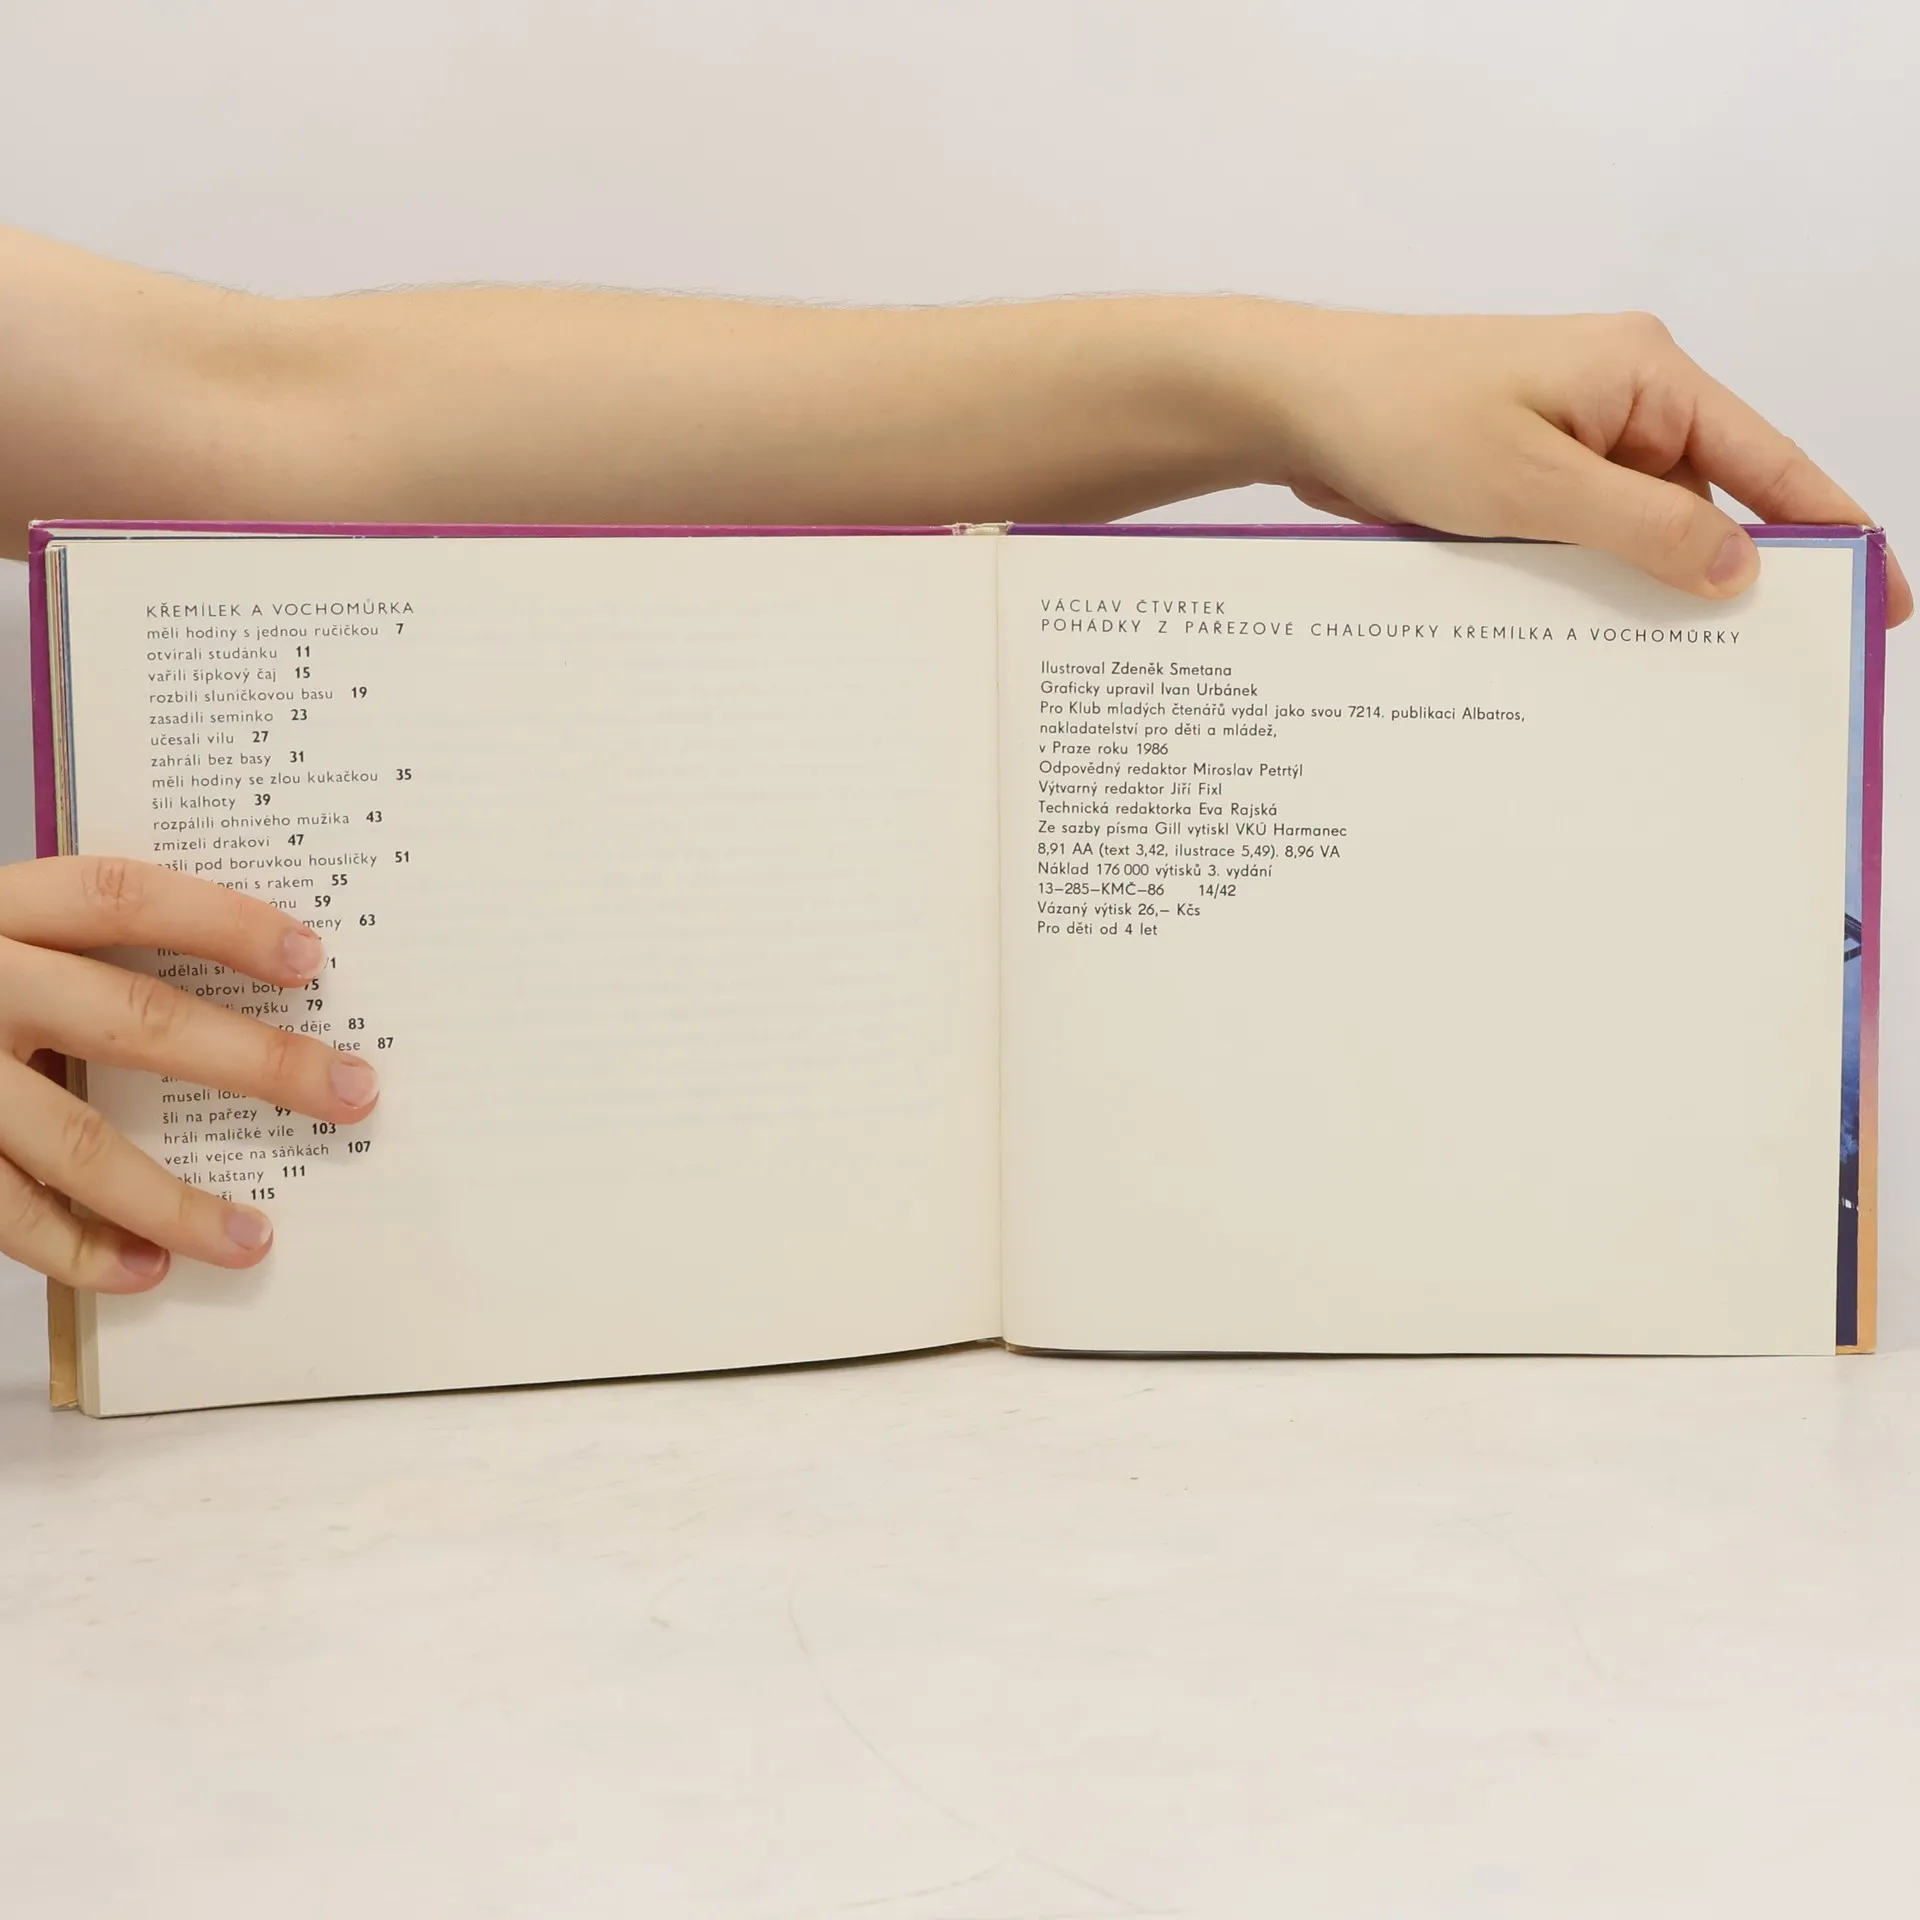 KŘEMÍLEK A VOCHOMŮRKA
měli hodiny s jednou ručičkou 7
otvírali studánku 11
vařili šípkový čaj 15
rozbili sluníčkovou basu 19
zasadili semínko 23
učesali vílu 27
zahráli bez basy 31
měli hodiny se zlou kukačkou 35
šili kalhoty 39
rozpálili ohnivého mužíka 43
zmizeli drakovi 47
pod borůvkou housličky 51
s rakem 55
59
63
udělali si
obrovi boty 75
myšku 79
děje 83
lese 87
museli
šli na pařezy 99
hráli maličké víle 103
vezli vejce na sáňkách 107
kaštany 111
115
VÁCLAV ČTVRTEK
POHÁDKY Z PAŘEZOVÉ CHALOUPKY KŘEMÍLKA A VOCHOMŮRKY
Ilustroval Zdeněk Smetana
Graficky upravil Ivan Urbánek
Pro Klub mladých čtenářů vydal jako svou 7214. publikaci Albatros,
nakladatelství pro děti a mládež,
v Praze roku 1986
Odpovědný redaktor Miroslav Petrtýl
Výtvarný redaktor Jiří Fixl
Technická redaktorka Eva Rajská
Ze sazby písma Gill vytiskl VKÚ Harmanec
8,91 AA (text 3,42, ilustrace 5,49). 8,96 VA
Náklad 176 000 výtisků 3. vydání
13–285–KMČ–86 14/42
Vázaný výtisk 26,– Kčs
Pro děti od 4 let